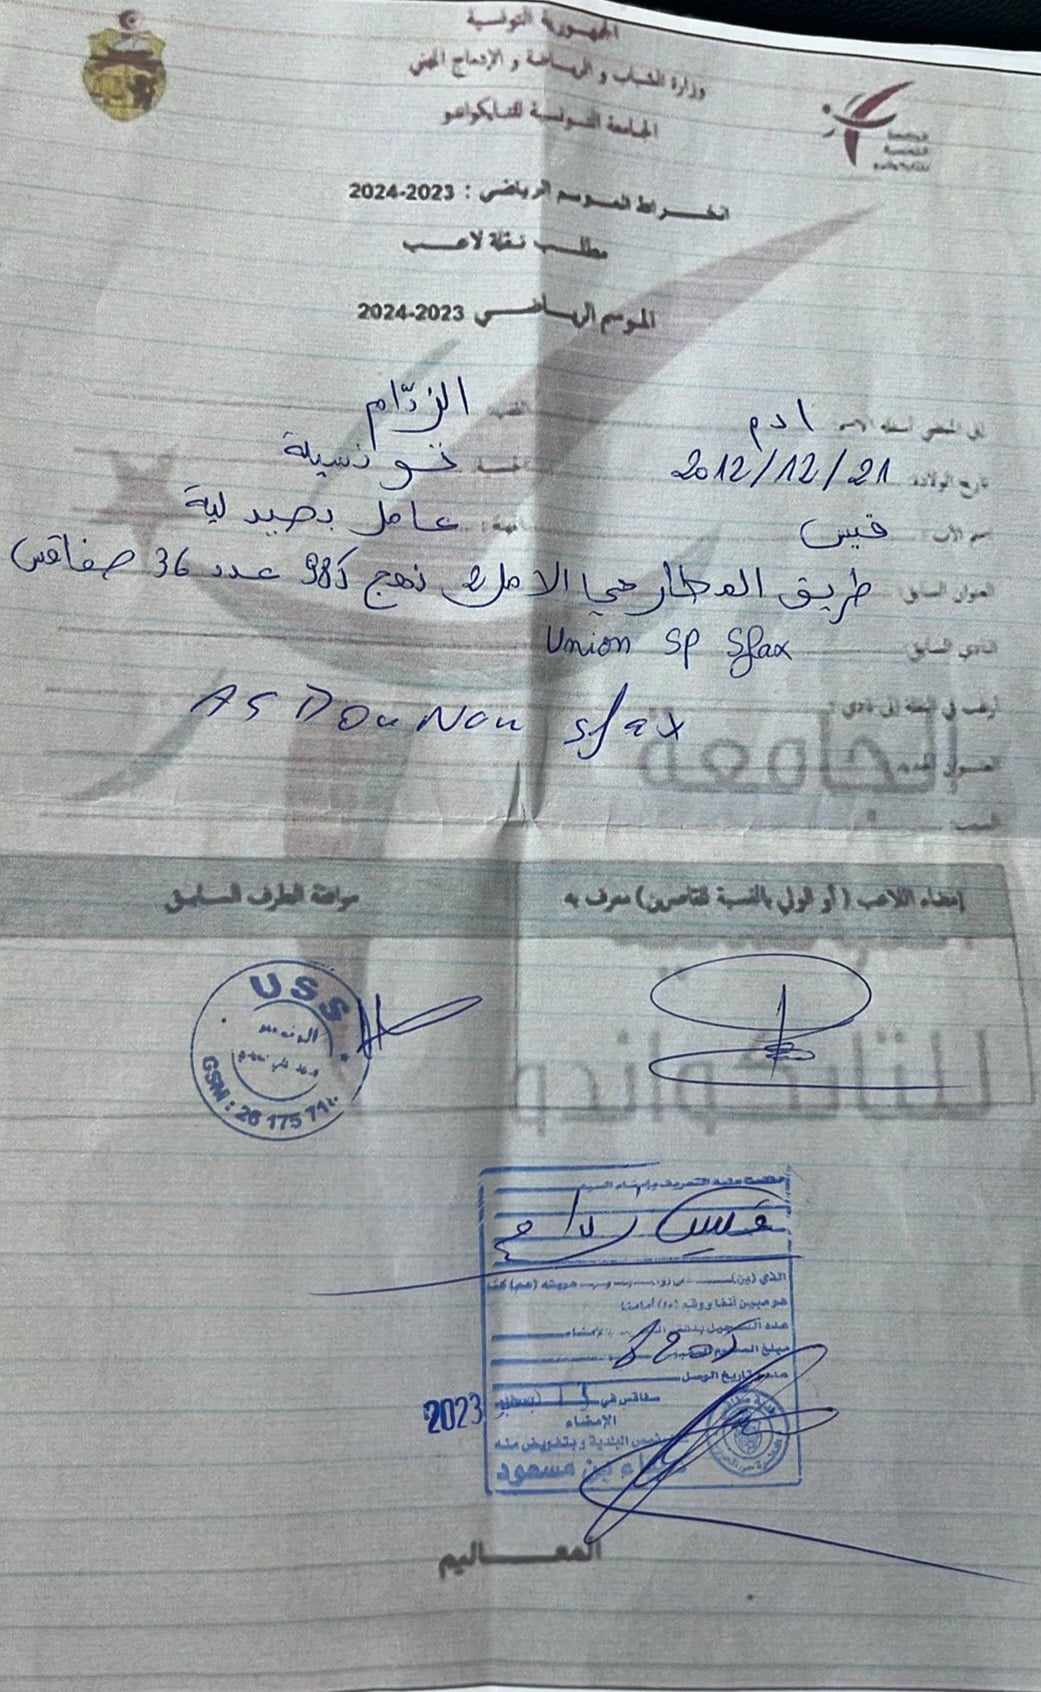 الجمهورية التونسية
وزارة الشباب و الرياضة و الإدماج المهني
الجامعة التونسية للتايكواندو
انخراط الموسم الرياضي : 2023-2024
مطلب نقلة لاعب
الموسم الرياضي 2023-2024
إني الممضي أسفله الاسم ادم اللقب الزدّام
تاريخ الولادة 2012/12/21 الجنسية تونسية
اسم الأب قيس المهنة: عامل بصيدلية
العنوان السابق: طريق العطار حي الامل 2 نهج عدد 36 صفاقس
النادي السابق: Union SP Sfax
أرغب في النقلة إلى نادي : AS DouNou Sfax
العنوان الجديد
السبب
إمضاء اللاعب ( أو الولي بالنسبة للقاصرين) معرف به
موافقة الطرف السابق
USS
GSM : 26 175
الجامعة
للتايكواندو
قيس
هو مبين أعلاه ووقع أمامنا
عدد وتاريخ الوصل
صفاقس في 2023
الإمضاء
رئيس البلدية و بتفويض منه
بن مسعود
المعاليم